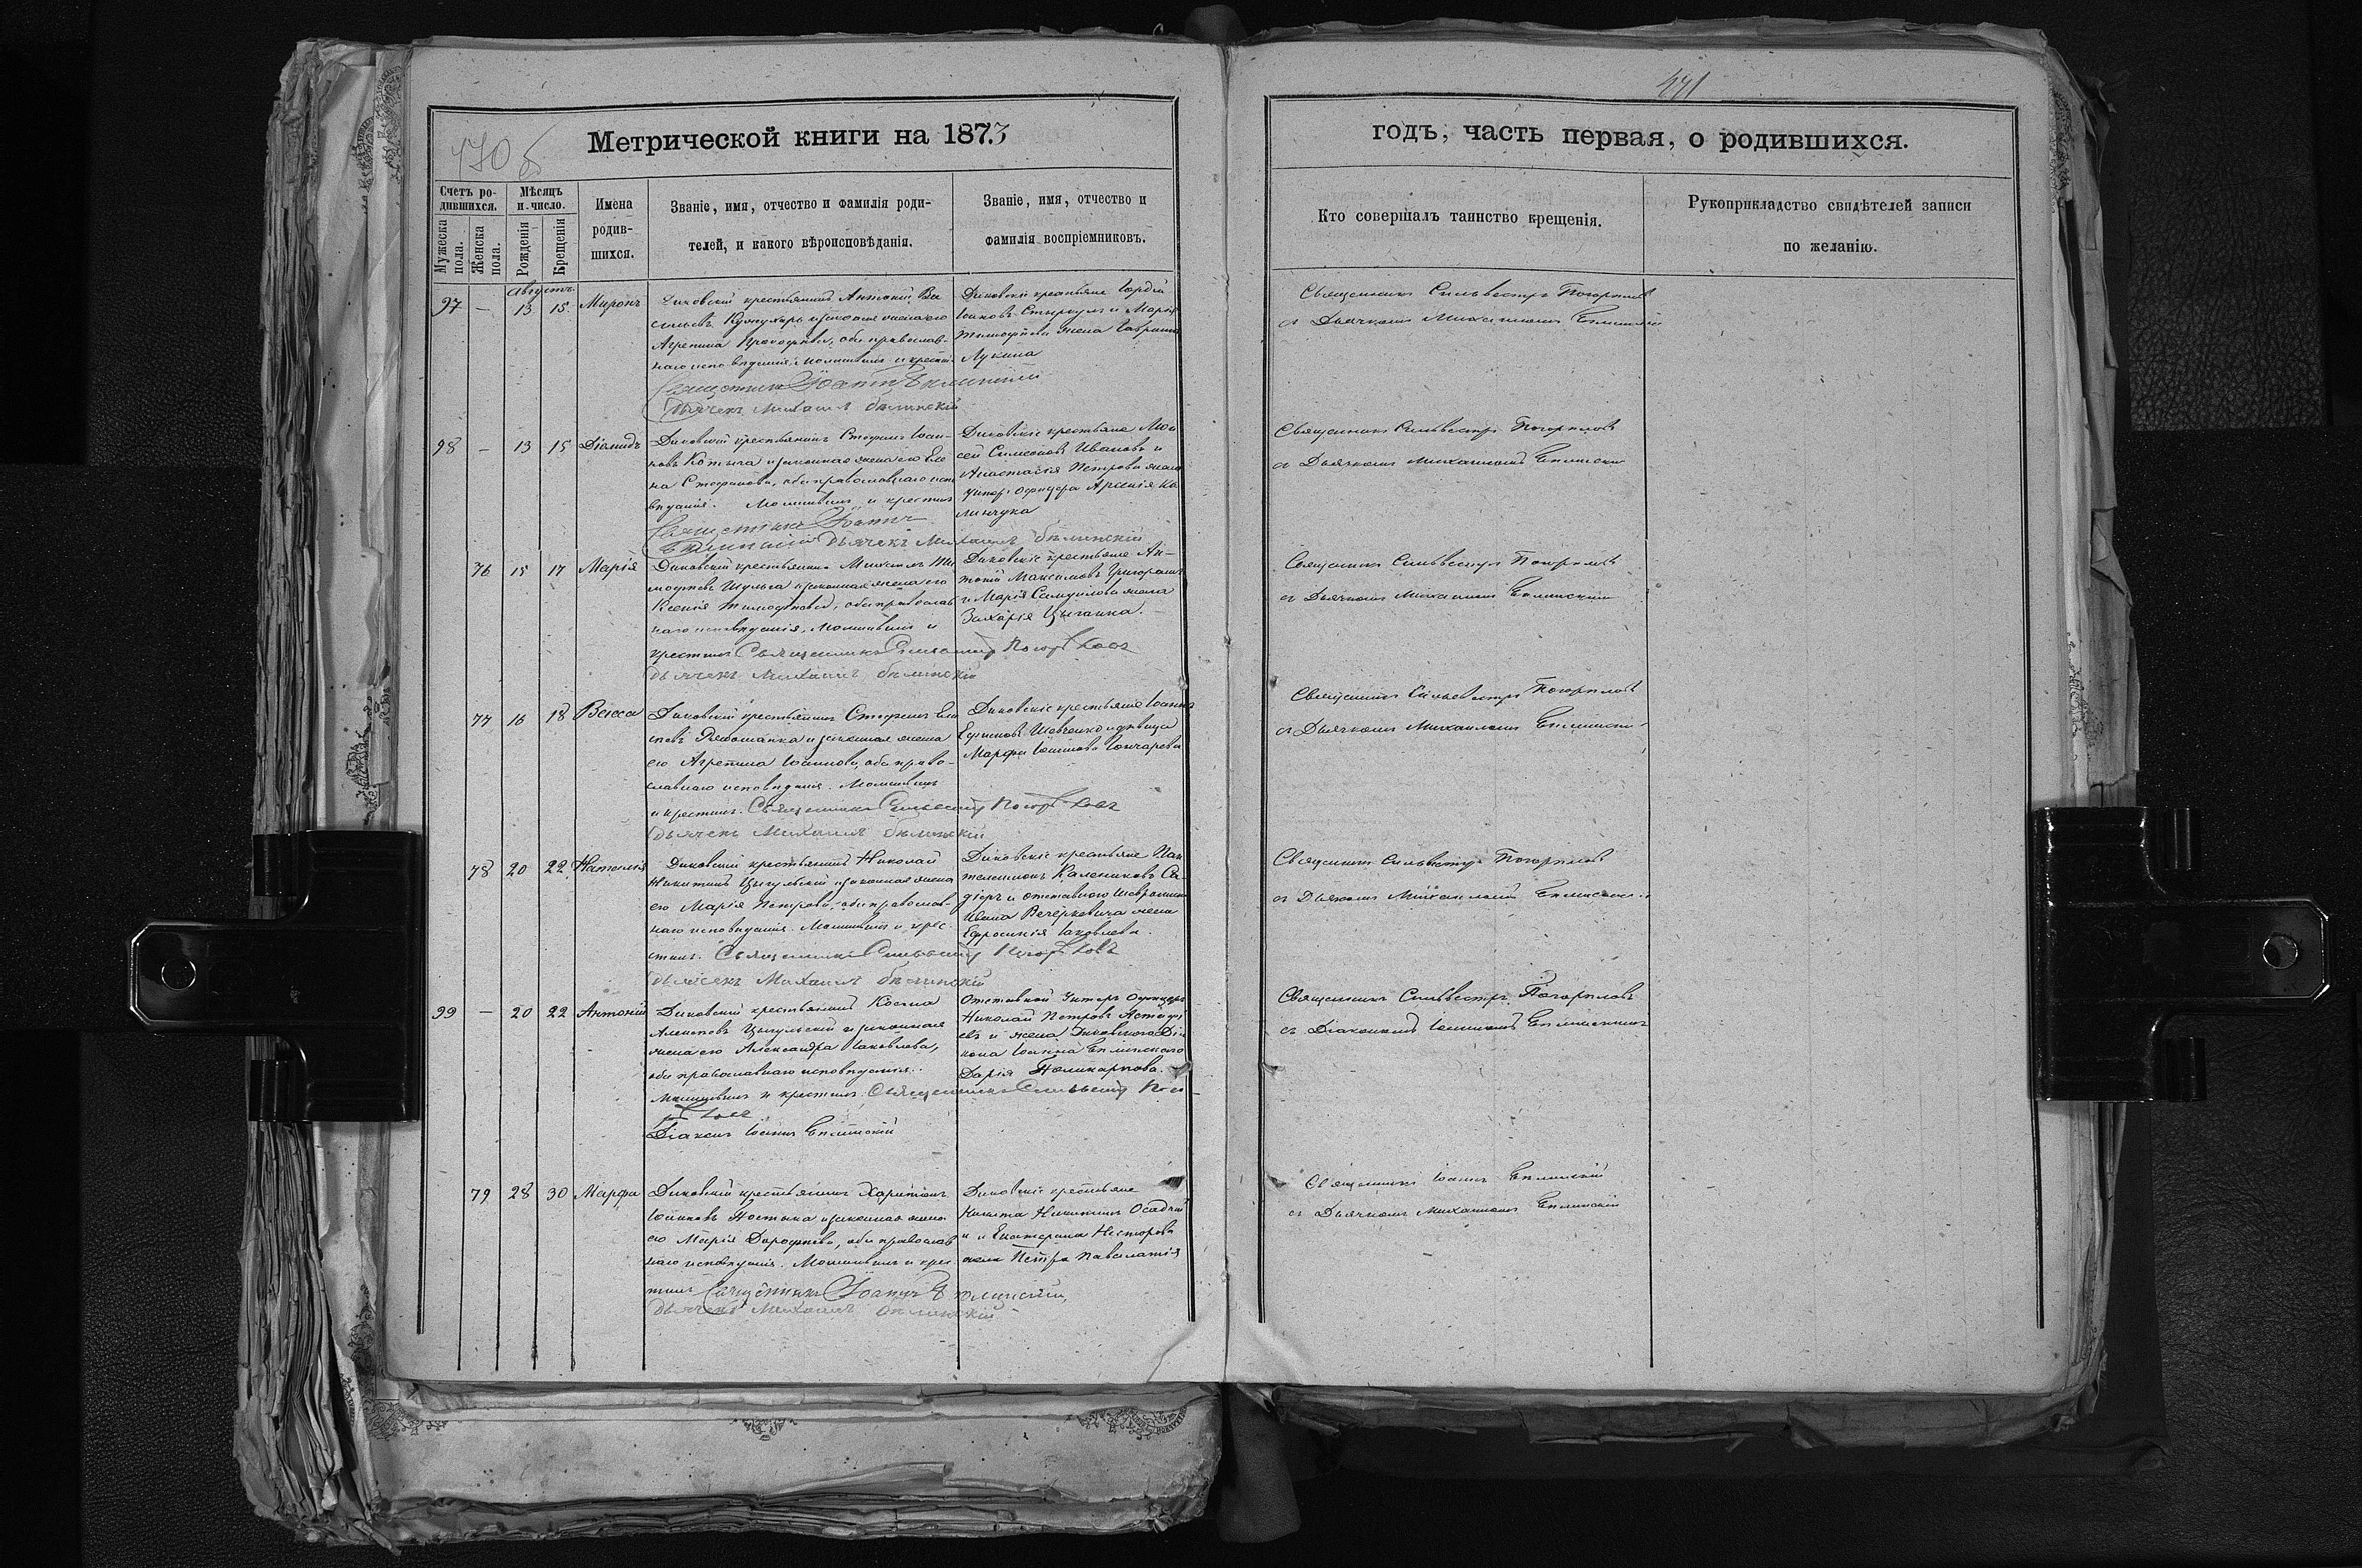 470 б
Метрической книги на 1873
Счетъ родившихся.
Мужеска пола.
Женска пола.
Мѣсяцъ и число.
Рожденія
Крещенія
Имена родившихся.
Званіе, имя, отчество и фамилія роди-
телей, и какого вѣроисповѣданія.
Званіе, имя, отчество и
фамилія воспріемниковъ.
Августъ
97 — 13 15 Миронъ
крестьянинъ Антоній Ва
сильевъ и законная жена его
Агрепина Прокофіева, оба православ-
наго исповеданія. Молитвилъ и крестилъ
Священникъ Іоаннъ Бѣлинскій
Дьячекъ Михаилъ Бѣлинскій
Диковскіе крестьяне Гордій
Іаковъ и Марія
Тимофѣева жена Гавриила
Лукина
98 — 13 15 Діомидъ
Диковскій крестьянинъ Стефанъ Іоан-
новъ и законная жена его Еле
на Стефанова, оба православнаго испо
веданія. Молитвилъ и крестилъ
Священникъ Іоаннъ
Бѣлинскій Дьячекъ Михаилъ Бѣлинскій
Диковскіе крестьяне Мои
сей Симеоновъ Ивановъ и
Анастасія Петрова жена
унтеръ офицера Арсенія Ка
линчука
76 15 17 Марія
Диковскій крестьянинъ Михаилъ Ти
мофѣевъ Шульга и законная жена его
Ксенія Тимофѣева, оба православ
наго исповѣданія. Молитвилъ и
крестилъ Священникъ Сильвестръ Погорѣловъ
Дьячекъ Михаилъ Бѣлинскій
Диковскіе крестьяне Ан-
тоній Максимовъ Григорашъ
и Марія Самуилова жена
Захарія Цыганка.
77 16 18 Васса
Диковскій крестьянинъ Стефанъ
и законная жена
его Агрепина Іоаннова, оба право-
славнаго исповѣданія. Молитвилъ
и крестилъ. Священникъ Сильвестръ Погорѣловъ
Дьячекъ Михаилъ Бѣлинскій
Диковскіе крестьяне Іоаннъ
Ефимовъ Шевченко и дѣвица
Марфа Іоаннова Гончарева
78 20 22 Наталія
Диковскій крестьянинъ Николай
Никитинъ Цыгульскій и законная жена
его Марія Петрова, оба православ-
наго исповѣданія. Молитвилъ и крес-
тилъ. Священникъ Сильвестръ Погорѣловъ
Дьячекъ Михаилъ Бѣлинскій
Диковскіе крестьяне Пан
телеимонъ Калениковъ
и отставнаго
Ивана жена
Ефросинія Іаковлева.
99 — 20 22 Антоній
Диковскій крестьянинъ Косма
Алексѣевъ Цыгульскій и законная
жена его Александра Іаковлева,
оба православнаго исповѣданія.
Молитвилъ и крестилъ. Священникъ Сильвестръ Пого
рѣловъ
Діаконъ Іоаннъ Бѣлинскій
Отставной Унтеръ Офицеръ
Николай Петровъ Астафі
евъ и жена Диковскаго Діа
кона Іоанна Бѣлинскаго
Дарія Поликарпова.
79 28 30 Марфа
Диковскій крестьянинъ Харитонъ
Іоанновъ и законная жена
его Марія Дорофѣева, оба православ
наго исповѣданія. Молитвилъ и крес
тилъ Священникъ Іоаннъ Бѣлинскій
Дьячекъ Михаилъ Бѣлинскій
Диковскіе крестьяне
Никита Никитинъ Осадчій
и Екатерина Несторова
жена Петра
471
годъ, часть первая, о родившихся.
Кто совершалъ таинство крещенія.
Рукоприкладство свидѣтелей записи
по желанію.
Священникъ Сильвестръ Погорѣловъ
съ Дьячкомъ Михаиломъ Бѣлинскимъ
Священникъ Сильвестръ Погорѣловъ
съ Дьячкомъ Михаиломъ Бѣлински
Священникъ Сильвестръ Погорѣловъ
съ Дьячкомъ Михаиломъ Бѣлинскимъ
Священникъ Сильвестръ Погорѣловъ
съ Дьячкомъ Михаиломъ Бѣлински
Священникъ Сильвестръ Погорѣловъ
съ Дьячкомъ Михаиломъ Бѣлинским
Священникъ Сильвестръ Погорѣловъ
съ Діакономъ Іоанномъ Бѣлинскимъ
Священникъ Іоаннъ Бѣлинскій
съ Дьячкомъ Михаиломъ Бѣлинскій